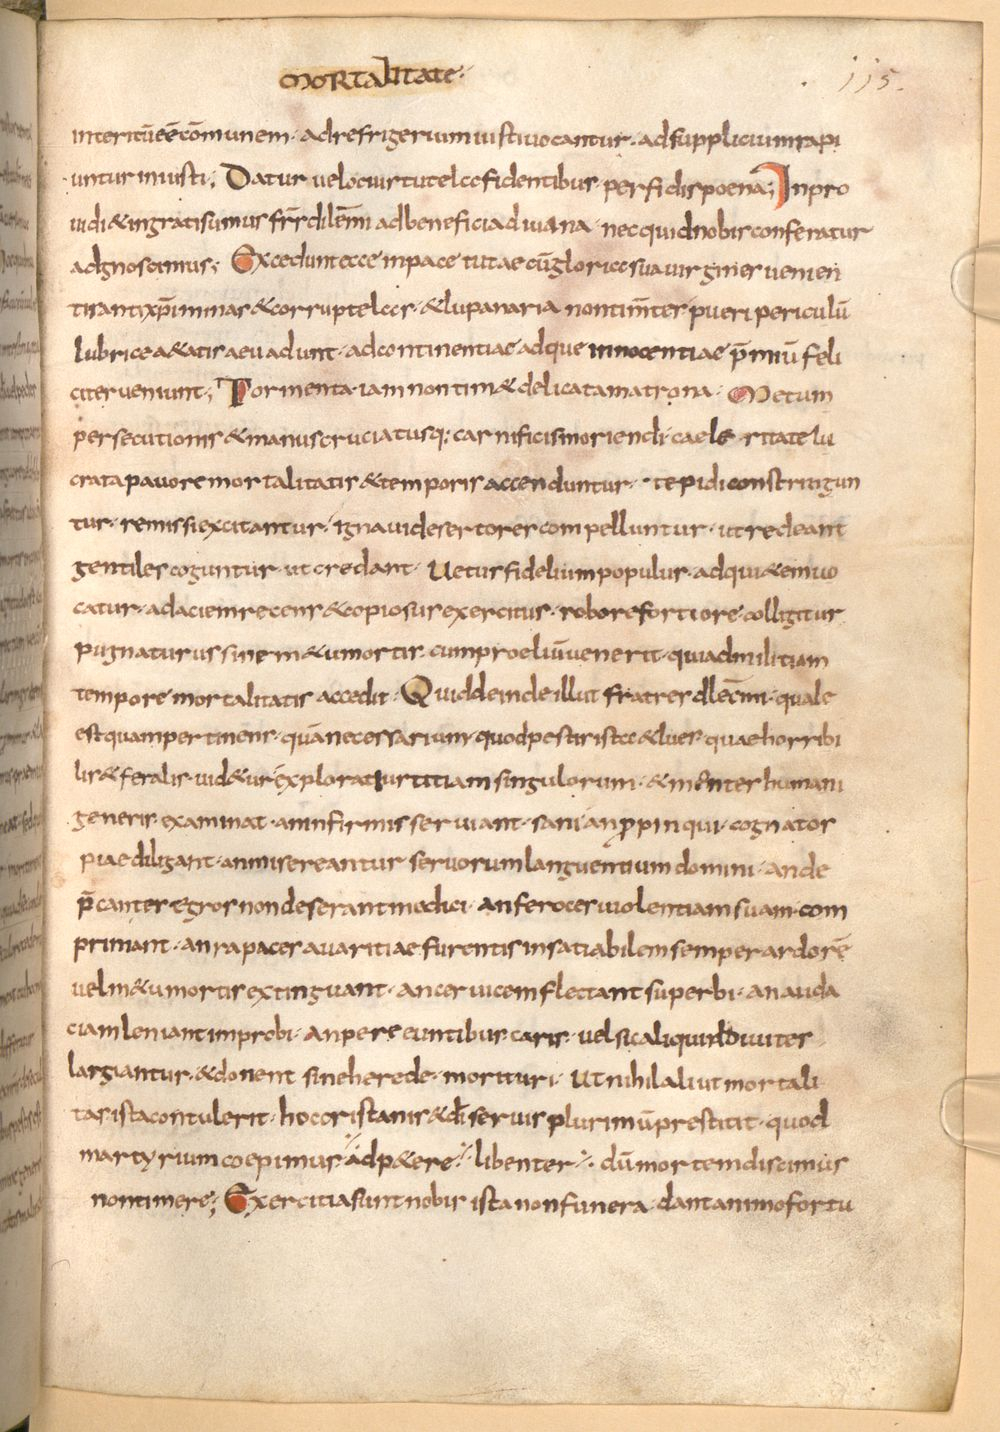 MORTALITATE
115.
interitū eē cōmunem · ad refrigerium iusti uocantur · ad supplicium rapi
untur iniusti; Datur uelociur tutela fidentibus · perfidis poena; Inpro
uidi & ingrati sumus frr̄ dilēmi ad beneficia diuina · nec quid nobis conferatur
adgnoscimus; Excedunt ecce in pace tutae cū gloria sua uirgines uenien
tis antixp̄i minas & corruptelas · & lupanaria non tim̄tes pueri periculū
lubricae aetatis aeuadunt · ad continentiae adque innocentiae p̄miū feli
citer ueniunt; Tormenta iam non tim& delicata matrona · Metum
persecutionis & manus cruciatusq; carnificis moriendi caeleritate lu
crata pauore mortalitatis & temporis accenduntur · tepidi constringun
tur · remissi excitantur · ignaui desertores compelluntur · ut redeant
gentiles coguntur · ut credant · Uetus fidelium populus · ad qui&em uo
catur · ad aciem recens & copiosus exercitus · robore fortiore colligitur
pugnaturus sine m&u mortis cum proeliū uenerit · qui ad militiam
tempore mortalitatis accedit · Quid deinde illut fratres dilēmi · quale
est quam pertinens · quā necessarium · quod pestis ista & lues · quae horribi
lis & feralis uid&ur explorat iustitiam singulorum · & mentes humani
generis examinat · an infirmis seruiant · sani an p̄pinqui · cognatos
piae diligant · an misereantur seruorum languentium domini · an de
p̄cantes egros non deserant medici · an feroces uiolentiam suam com
primant · an rapaces auaritiae furentis insatiabilem semper ardorē
uel m&u mortis extinguant · an ceruicem flectant superbi · an auda
ciam leniant improbi · an pereeuntibus caris · uel sic aliquid diuites
largiantur · & donent sine herede · morituri · Ut nihil aliut mortali
tas ista contulerit · hoc cristianis & dī seruis plurimū prestitit · quod
martyrium coepimus adp&ere libenter · dū mortem discimus
non timere; Exercitia sunt nobis ista non funera · dant animo fortu